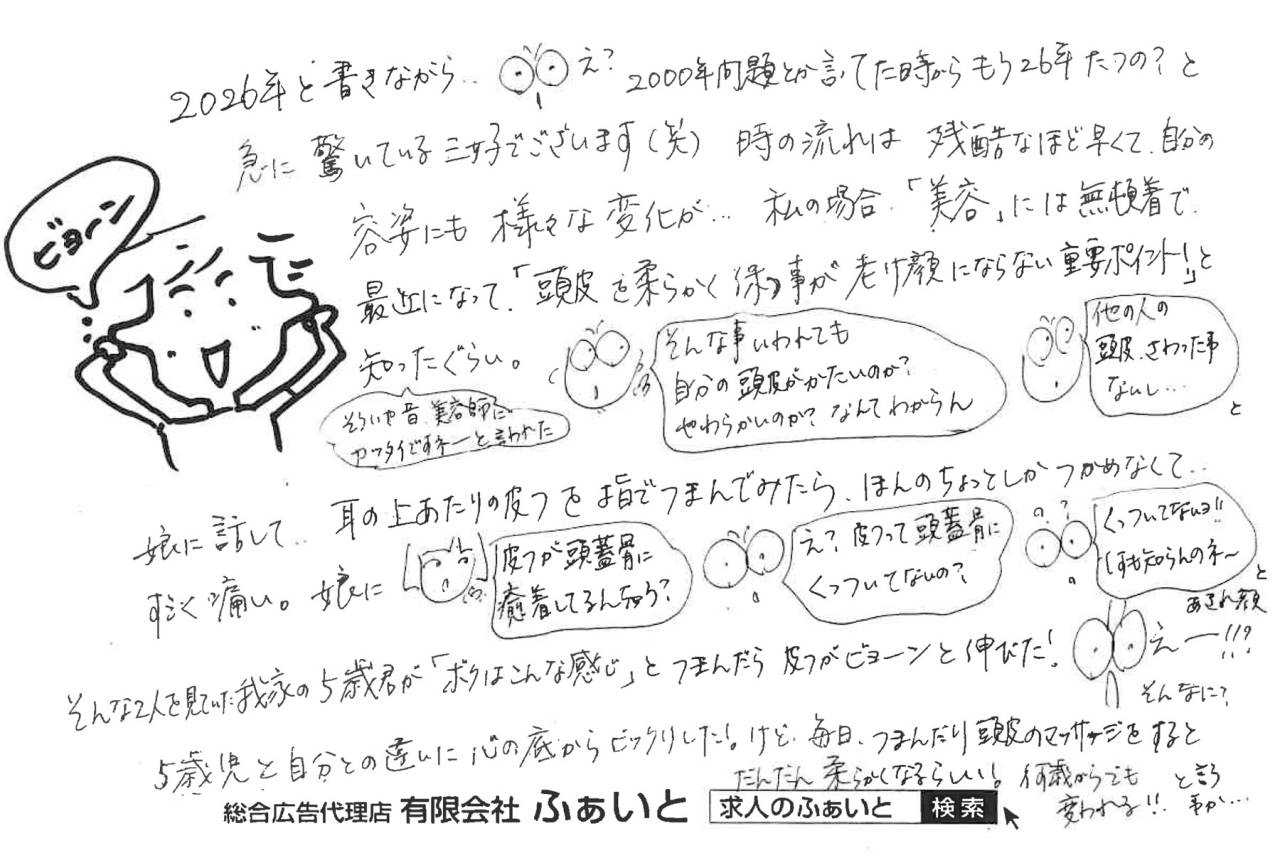 2026年と書きながら‥ え? 2000年問題とか言ってた時からもう26年たつの?と
急に驚いている三好でございます(笑) 時の流れは残酷なほど早くて、自分の
ビヨーン
容姿にも様々な変化が… 私の場合、「美容」には無頓着で、
最近になって、「頭皮を柔らかく保つ事が老け顔にならない重要ポイント!」と
知ったぐらい。
そんな事いわれても
自分の頭皮がかたいのか?
やわらかいのか?なんてわからん
他の人の
頭皮、さわった事
ないし…
と
そういや昔、美容師に
カッタイですネーと言われた
娘に話して‥ 耳の上あたりの皮フを指でつまんでみたら、ほんのちょっとしかつかめなくて‥
すごく痛い。娘に
皮フが頭蓋骨に
癒着してるんちゃう?
え?皮フって頭蓋骨に
くっついてないの?
??
くっついてないヨ!!
しも知らんのネ〜
と
あきれ顔
そんな2人を見ていた我家の5歳君が「ボクはこんな感じ」とつまんだら皮フがビヨーンと伸びた!
えー!!?
そんなに?
5歳児と自分との違いに心の底からビックリした!けど、毎日、つまんだり頭皮のマッサージをすると
だんだん柔らかくなるらしい! 何歳からでも
変われる!!
と言う
事か…
総合広告代理店 有限会社 ふぁいと 求人のふぁいと 検索